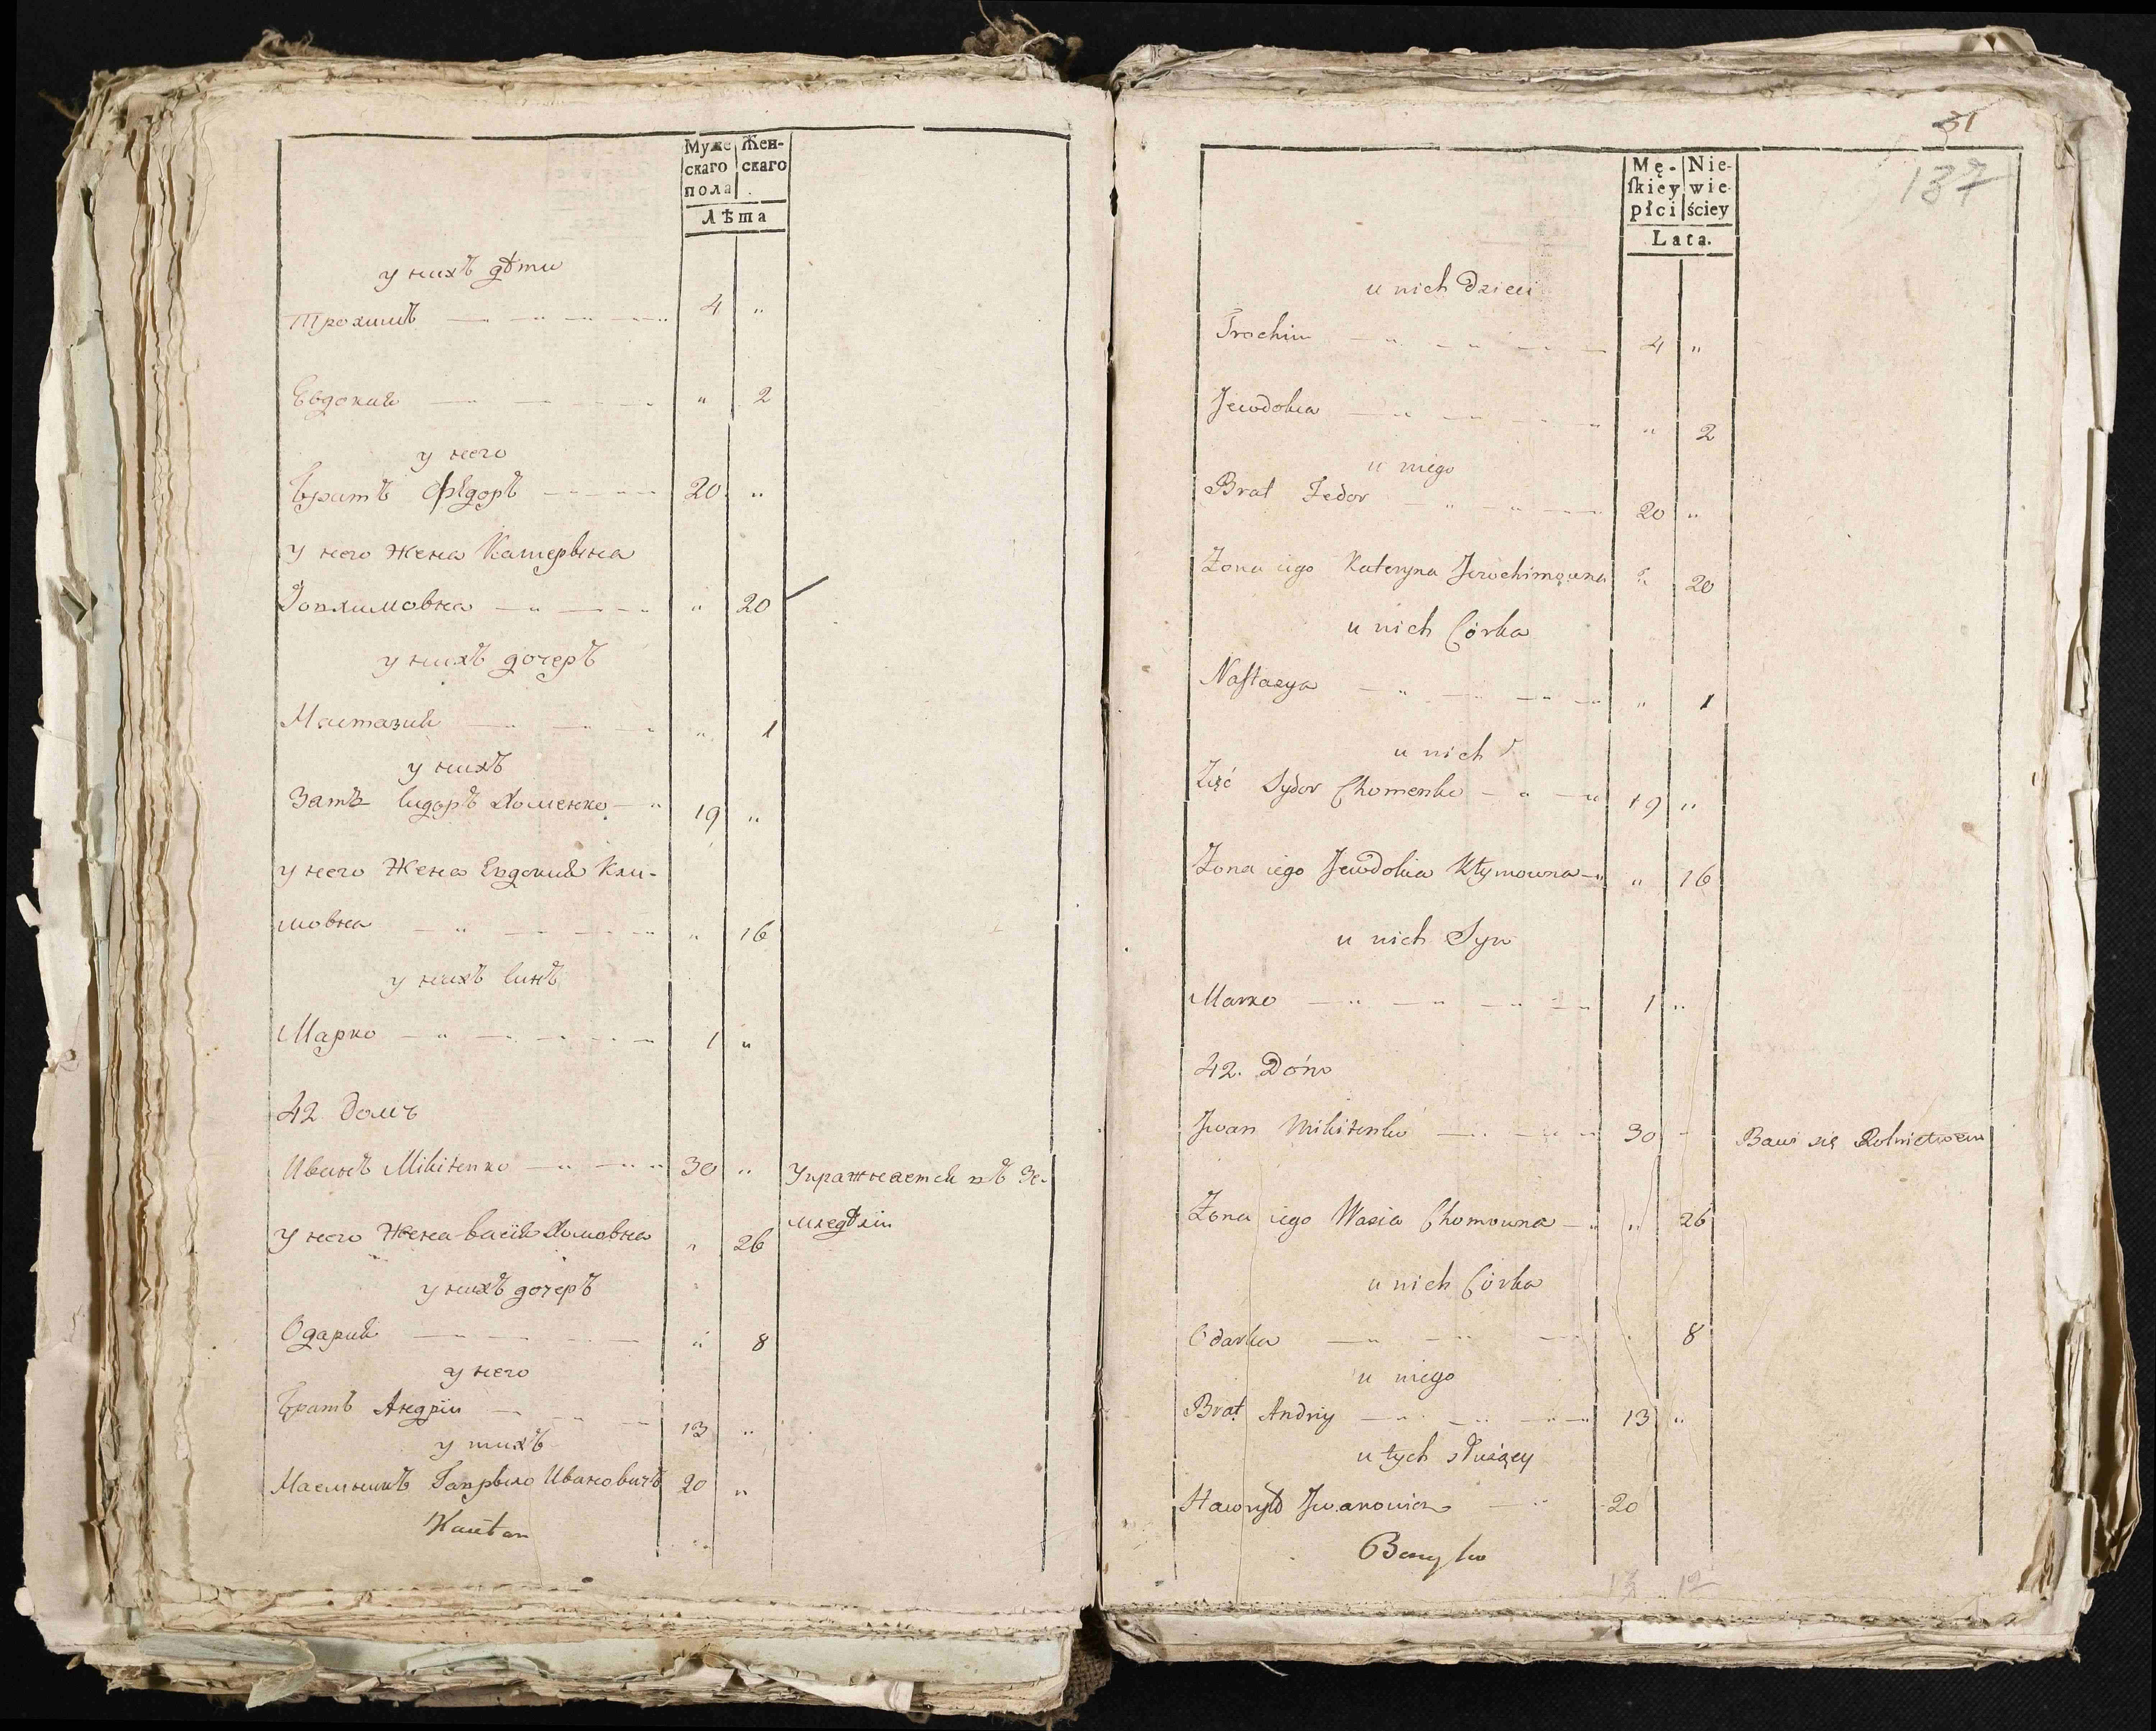 Муже Жен-
скаго скаго
пола
Лѣта
у нихъ дѣти
Трохимъ 4 "
Евдокия " 2
у него
Братъ Федоръ 20 "
у него жена Катерына
" 20
у нихъ дочеръ
Настазия " 1
у нихъ
Зать Сидоръ Хоменко 19 "
у него Жена Евдокия Кли-
мовна " 16
у нихъ Синъ
Марко 1 "
42 Домъ
Иванъ Mikitenko 30 " Упражняется въ Зе-
мледѣлiи
у него Жена Васія Хомовна " 26
у нихъ дочеръ
Одария " 8
у него
Братъ Андріи 13 "
у нихъ
Наемникъ Гаврыло Ивановичъ 20 "
31
137
Mę- Nie-
ſkiey wie-
płci ściey
Lata.
u nich Dzieci
Trochim 4 "
Jewdokia " 2
u niego
Brat Fedor 20 "
Żona iego Kateryna Jewchimowna " 20
u nich Córka
Naſtazya " 1
u nich
Zięć Sydor Chomenko 19 "
Żona iego Jewdokia Kłymowna " 16
u nich Syn
Marko 1 "
42. Dóm
Jwan Mikitenko 30 - Bawi się Rolnictwem
Żona iego Wasia Chomowna " 26
u nich Córka
Odarka 8
u niego
Brat Andriy 13 "
u tych służący
Hawryło Jwanowicz 20
13 12